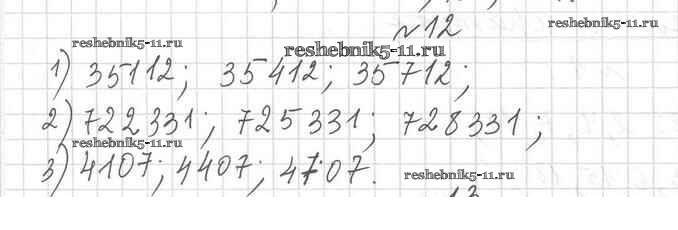 №12
reshebnik5-11.ru
reshebnik5-11.ru
1) 35112; 35412; 35712;
2) 722331; 725331; 728331;
reshebnik5-11.ru
3) 4107; 4407; 4707.
reshebnik5-11.ru